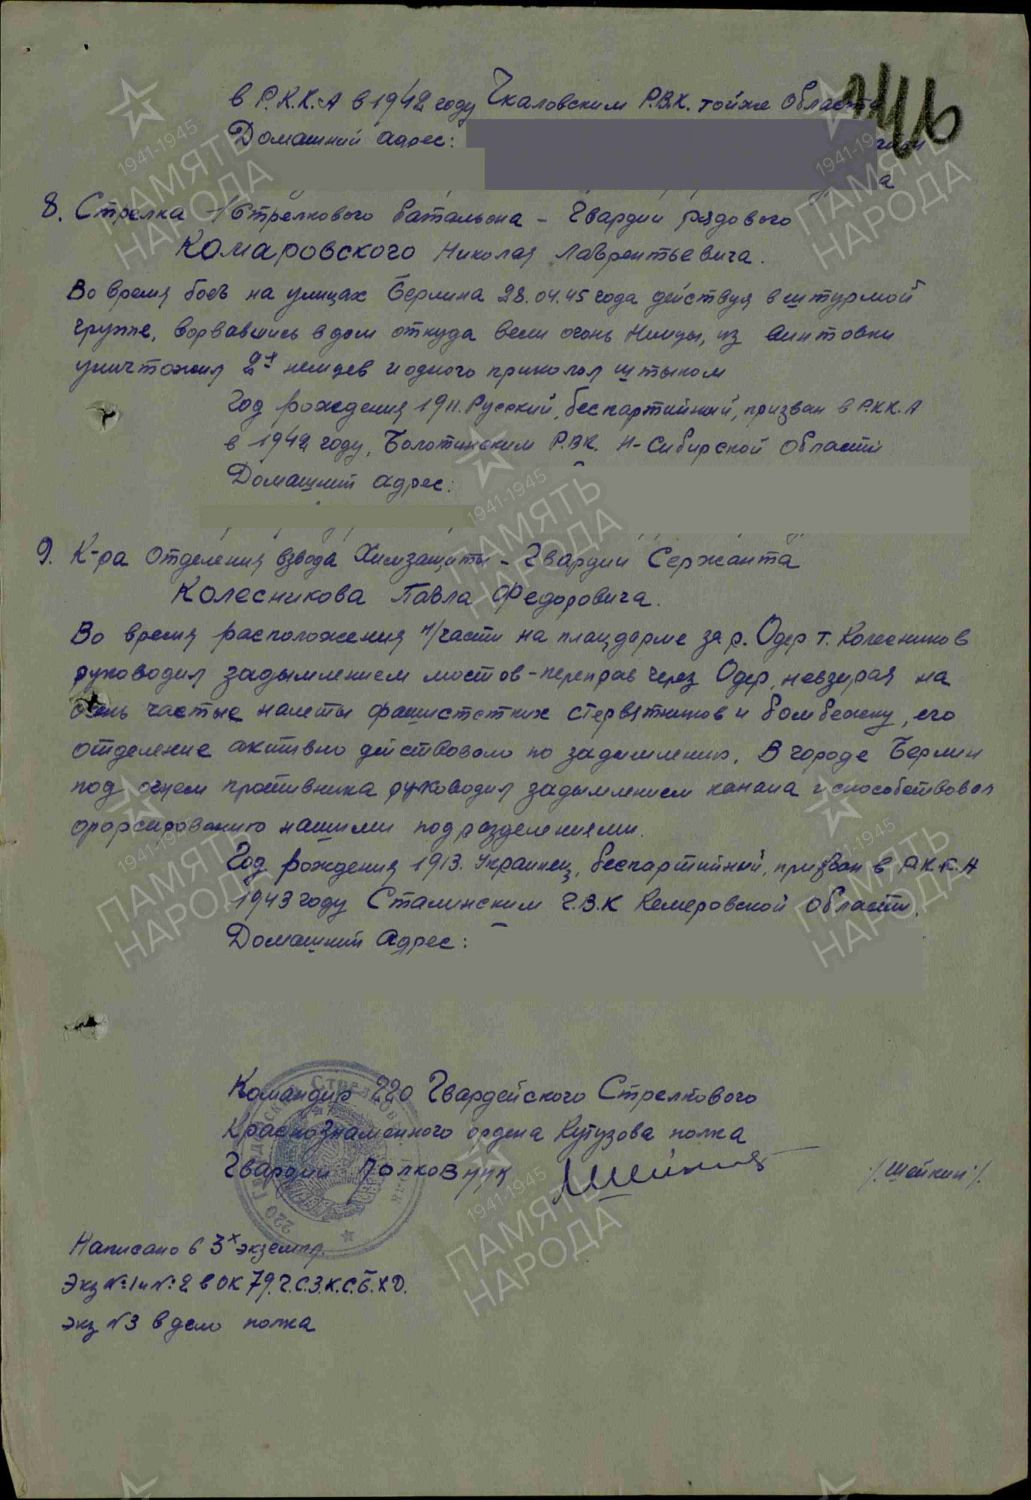 в Р.К.К.А в 1942 году Чкаловским Р.В.К. тойже Области
Домашний адрес:
8. Стрелка 1 Стрелкового батальона - Гвардии рядового
Комаровского Николая Лаврентьевича.
Во время боев на улицах Берлина 28.04.45 года действуя в штурмой
группе, ворвавшись в дом откуда вели огонь немцы, из винтовки
уничтожил 2х немцев и одного приколол штыком
Год рождения 1911. Русский, беспартийный, призван в РКК.А
в 1942 году, Болотинским Р.ВК. Н-Сибирской Области
Домашний адрес:
9. К-ра Отделения взвода Химзащиты - Гвардии Сержанта
Колесникова Павла Федоровича.
Во время расположения н/части на плацдарме за р. Одер т. Колесников
руководил задымлением мостов-переправ через Одер, невзирая на
очень частые налеты фашистстких стервятников и бомбежку, его
отделение активно действовало по задымлению. В городе Берлин
под огнем противника руководил задымлением канала и способствовал
форсированию нашими подразделениями.
Год рождения 1913. Украинец, беспартийный, призван в РКК.А
1943 году Сталинским Г.В.К Кемеровской области.
Домашний Адрес:
Командир 220 Гвардейского Стрелкового
Краснознаменного ордена Кутузова полка
Гвардии Полковник
/.Шейкин./.
Написано в 3х экземпр.
Экз №1 и №2 в ОК 79.Г.С.З.К.С.Б.Х.Д.
экз №3 в дело полка
1941-1945
ПАМЯТЬ
НАРОДА